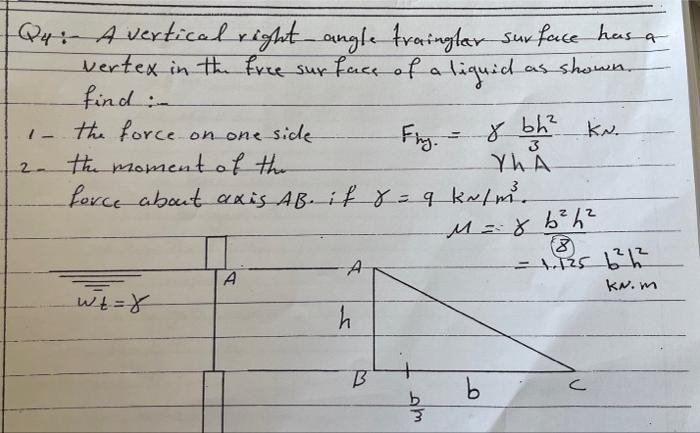 Q4:- A vertical right-angle trainglar surface has a
vertex in the free surface of a liquid as shown.
find :-
1- the force on one side F_hy. = γ bh²/3 KN.
2- the moment of the γhA
force about axis AB. if γ = 9 kN/m³.
M = γ b²h²/8
= 1.125 b²h²
KN.m
A A
wt = γ
h
B b C
b/3